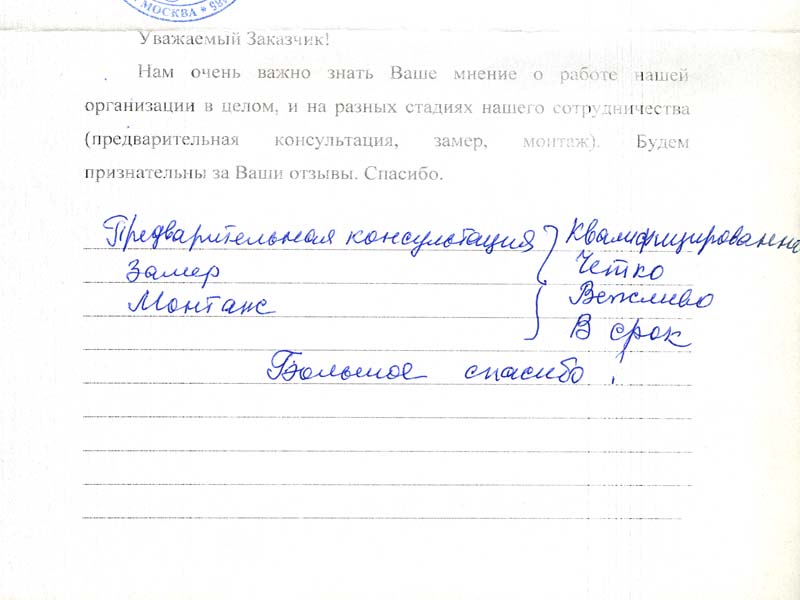 МОСКВА *
Уважаемый Заказчик!
Нам очень важно знать Ваше мнение о работе нашей
организации в целом, и на разных стадиях нашего сотрудничества
(предварительная консультация, замер, монтаж). Будем
признательны за Ваши отзывы. Спасибо.
Предварительная консультация } Квалифицированно
Замер Четко
Монтаж Вежливо
В срок
Большое спасибо!